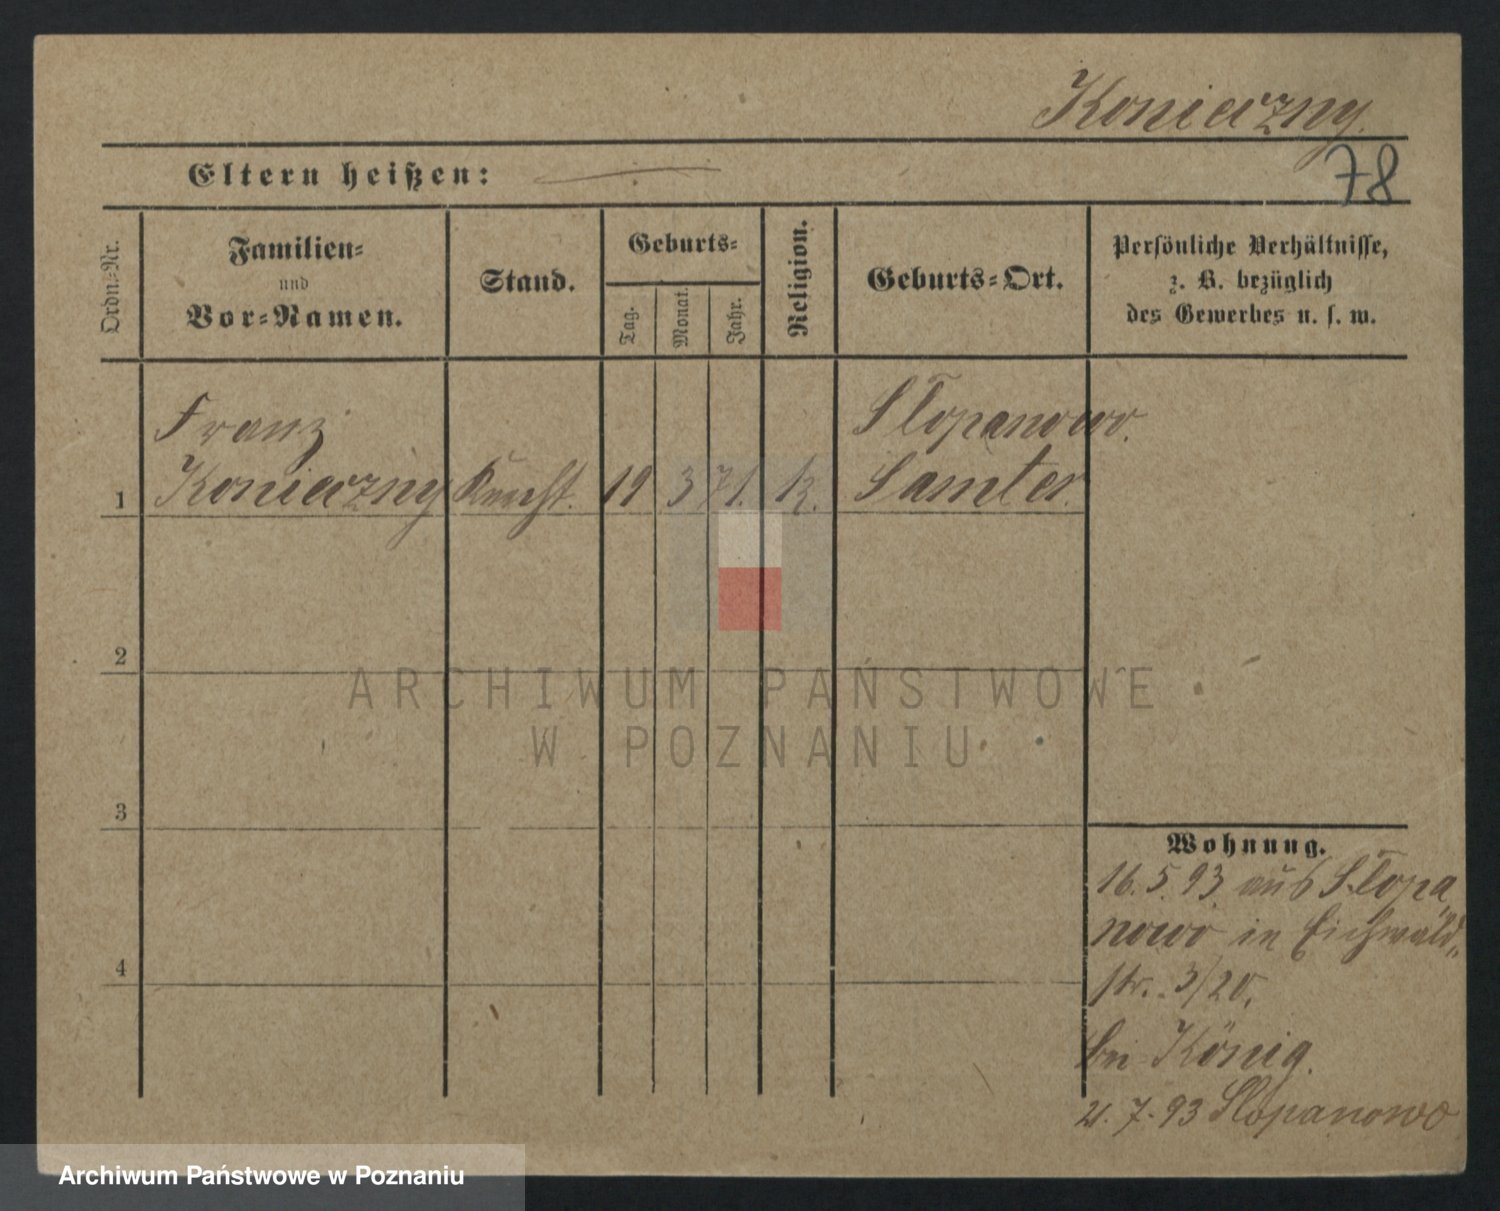 Konieczny.
78
Eltern heißen:
Ordn.-Nr.
Familien-
und
Vor-Namen.
Stand.
Geburts-
Tag.
Monat.
Jahr.
Religion.
Geburts-Ort.
Persönliche Verhältnisse,
z. B. bezüglich
des Gewerbes u. s. w.
Franz
Konieczny
Knecht.
19
3
71.
k.
Slopanowo.
Samter.
1
2
3
4
ARCHIWUM PAŃSTWOWE
W POZNANIU
Wohnung.
16. 5. 93. aus Slopa
nowo in Eichwald„
str. 3/20.
bei König.
21. 7. 93 Slopanowo
Archiwum Państwowe w Poznaniu